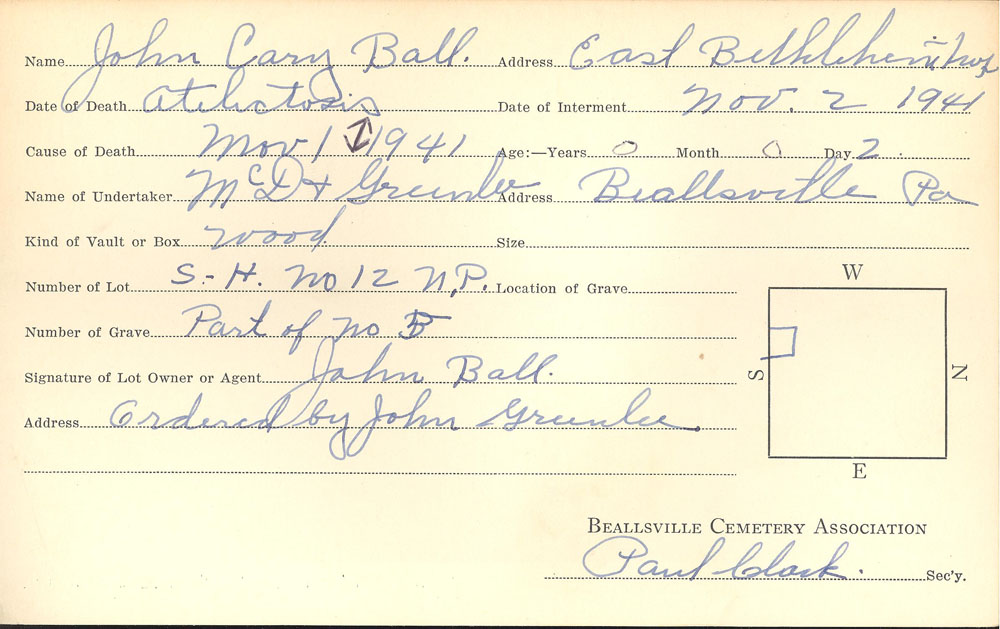 Name John Cary Ball. Address East Bethlehem twp
Date of Death atelictosis Date of Interment Nov. 2 1941
Cause of Death Nov 1 1941 Age:—Years 0 Month 0 Day 2
Name of Undertaker McD + Greenlee Address Beallsville Pa
Kind of Vault or Box wood Size
Number of Lot S-H. No 12 N.P. Location of Grave
Number of Grave Part of No 5
Signature of Lot Owner or Agent John Ball.
Address Ordered by John Greenlee
W
S
N
E
BEALLSVILLE CEMETERY ASSOCIATION
Paul Clark. Sec'y.